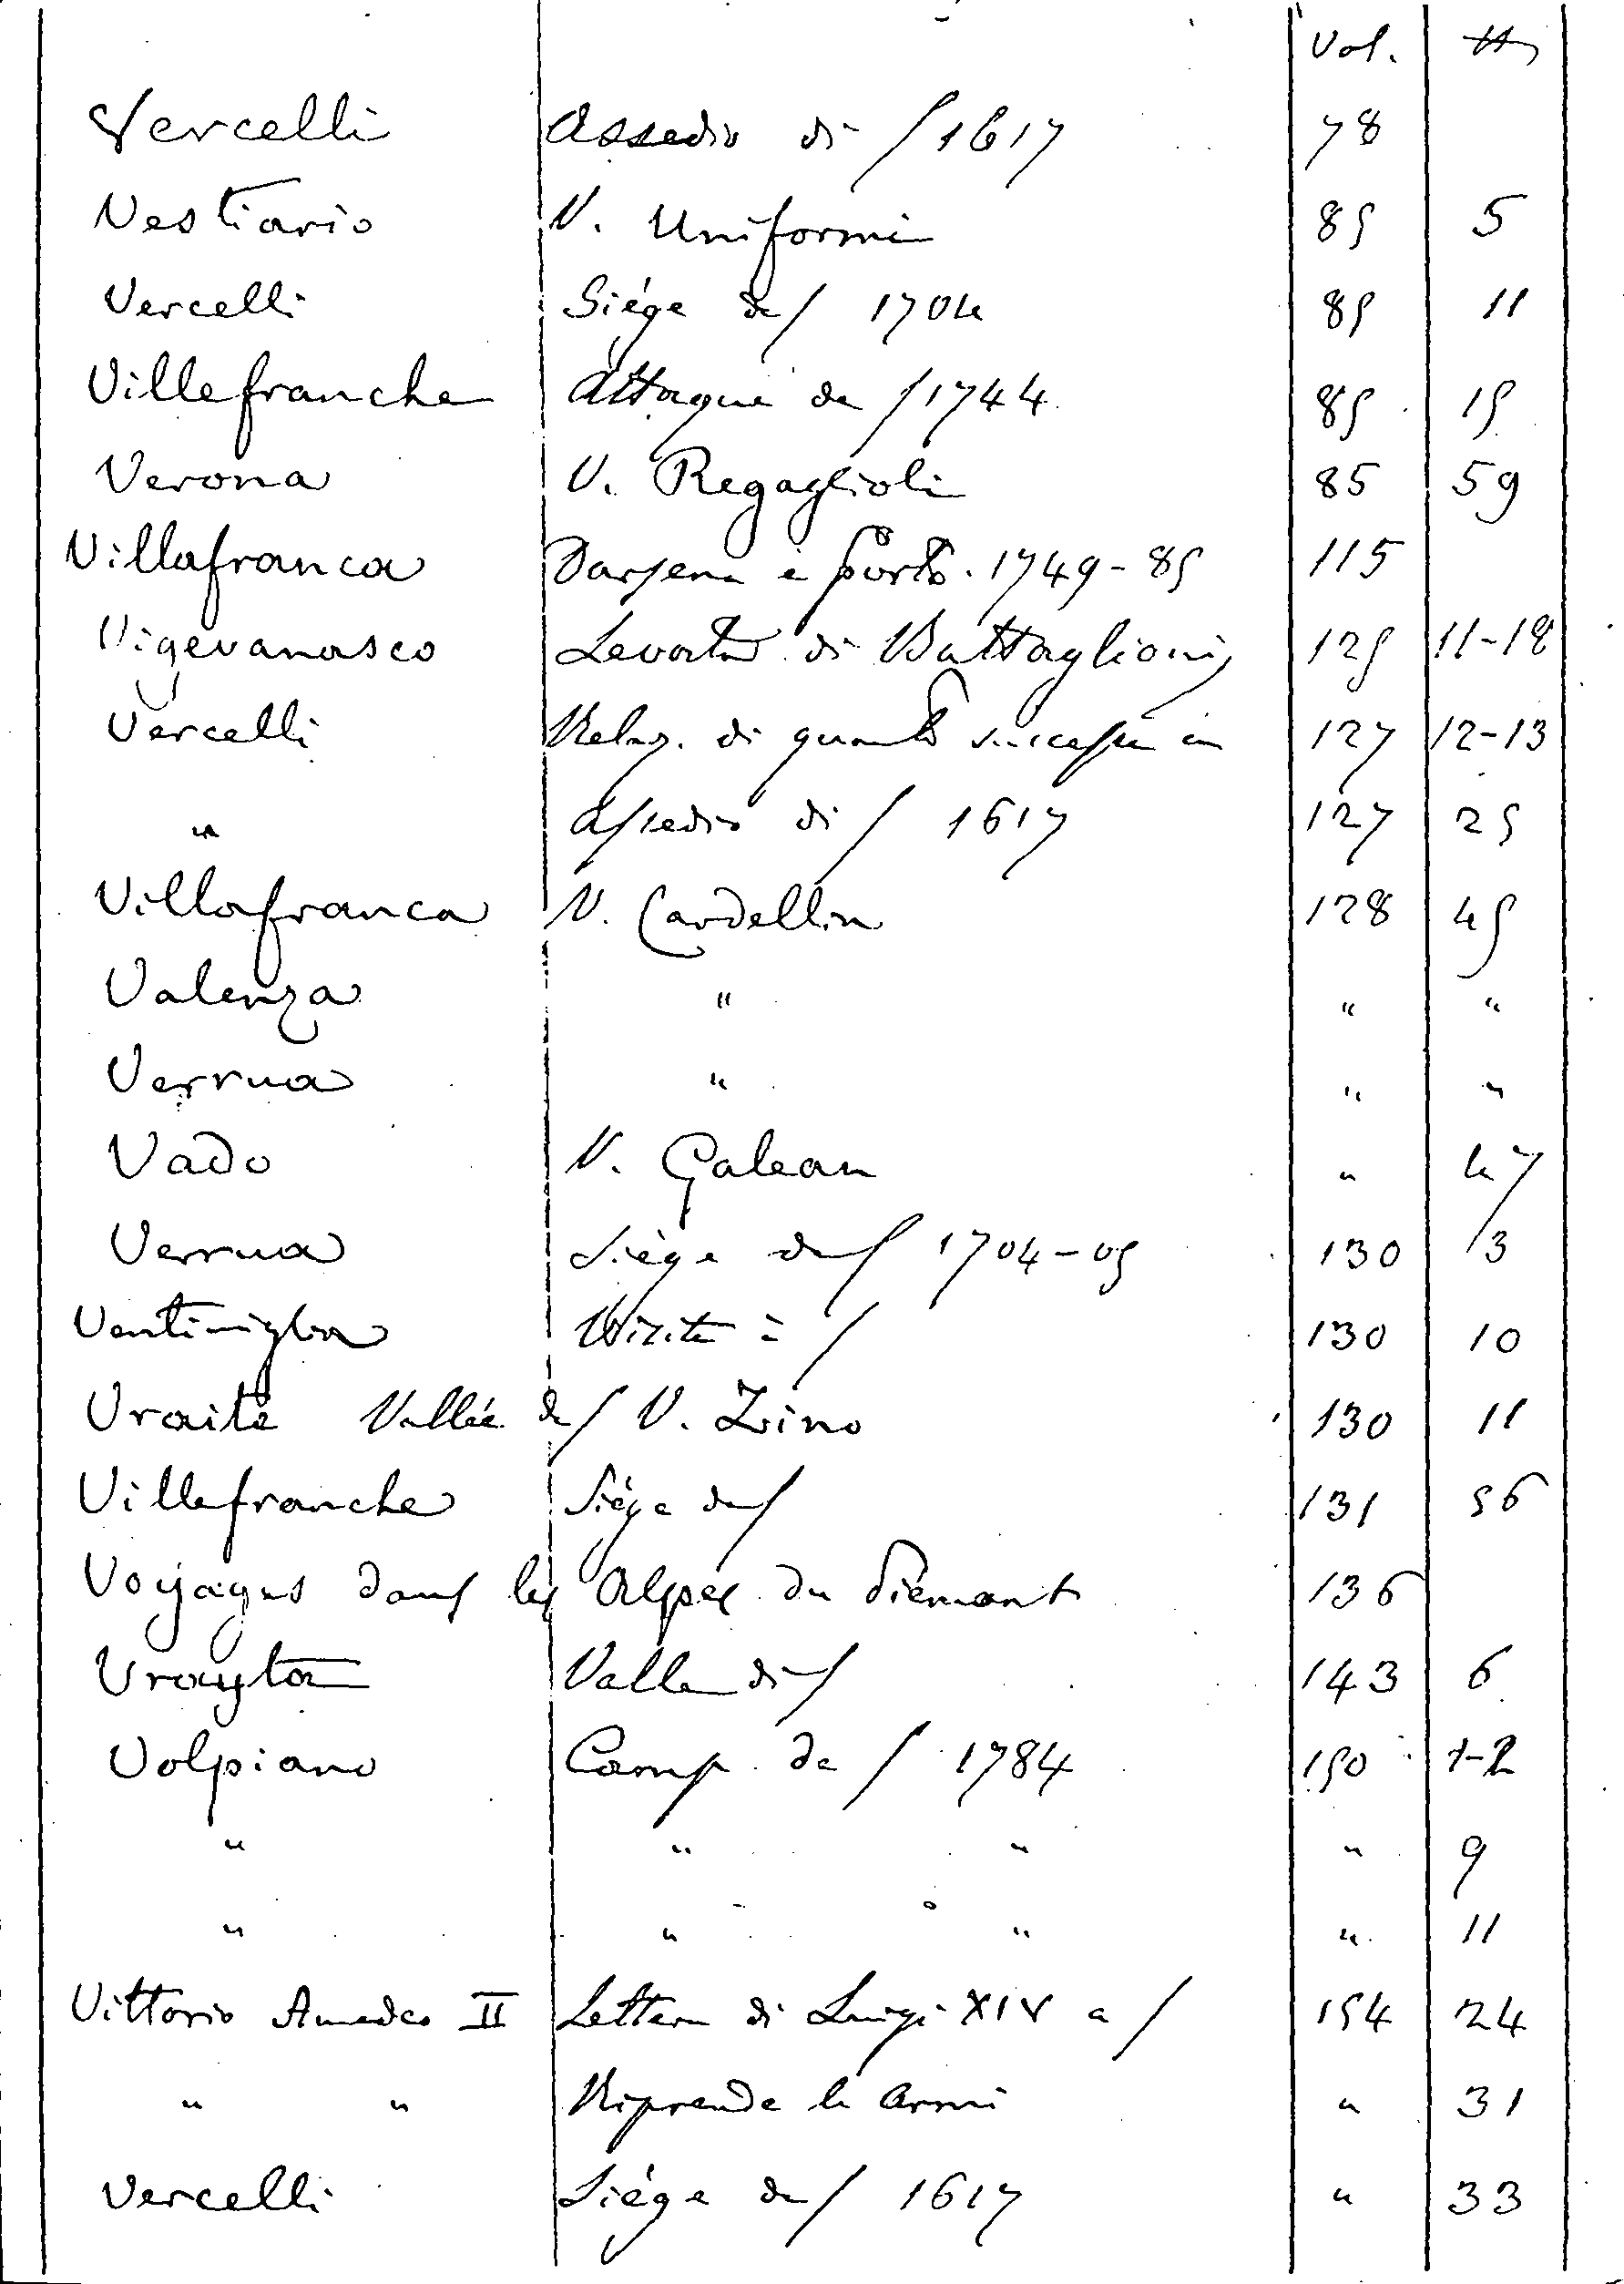 Vol. #
Vercelli Assedio di / 1617 78
Vestiario V. Uniformi 85 5
Vercelli Siége de / 1704 85 11
Villefranche Attaque de / 1744 85 15
Verona V. Regaglioli 85 59
Villafranca Darsena e Porto. 1749-85 115
Vigevanasco Levata di Battaglioni 125 11-18
Vercelli Relaz. di quanto successe in 127 12-13
" Assedio di / 1617 127 25
Villafranca V. Cardellin 128 45
Valenza " " "
Verrua " " "
Vado V. Galean " 47
Verrua Siége de / 1704-05 130 3
Ventimiglia Visite à / 130 10
Vraita Vallée de / V. Zino 130 11
Villefranche Siége de / 131 56
Voyages dans les Alpes du Piémont 136
Vrayta Valle di / 143 6
Volpiano Camp de / 1784 150 1-2
" " " " 9
" " " " 11
Vittorio Amedeo II Lettera di Luigi XIV a / 154 24
" " Riprende le armi " 31
Vercelli Siége de / 1617 " 33